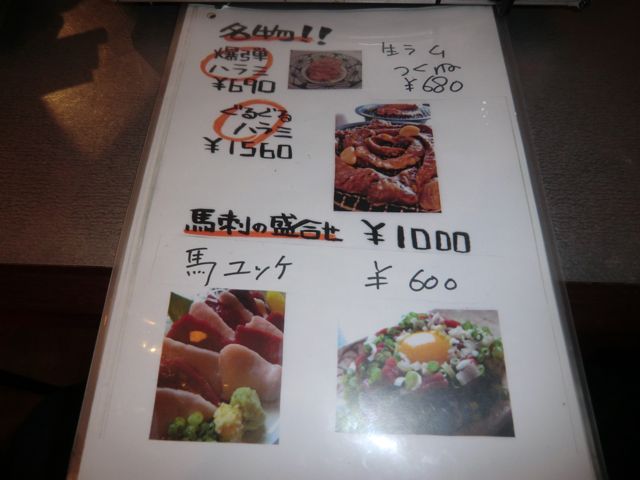 名物!!
爆弾
ハラミ
¥690
つくね
¥680
ぐるぐる
ハラミ
¥1560
馬刺の盛合せ ¥1000
馬ユッケ ¥600